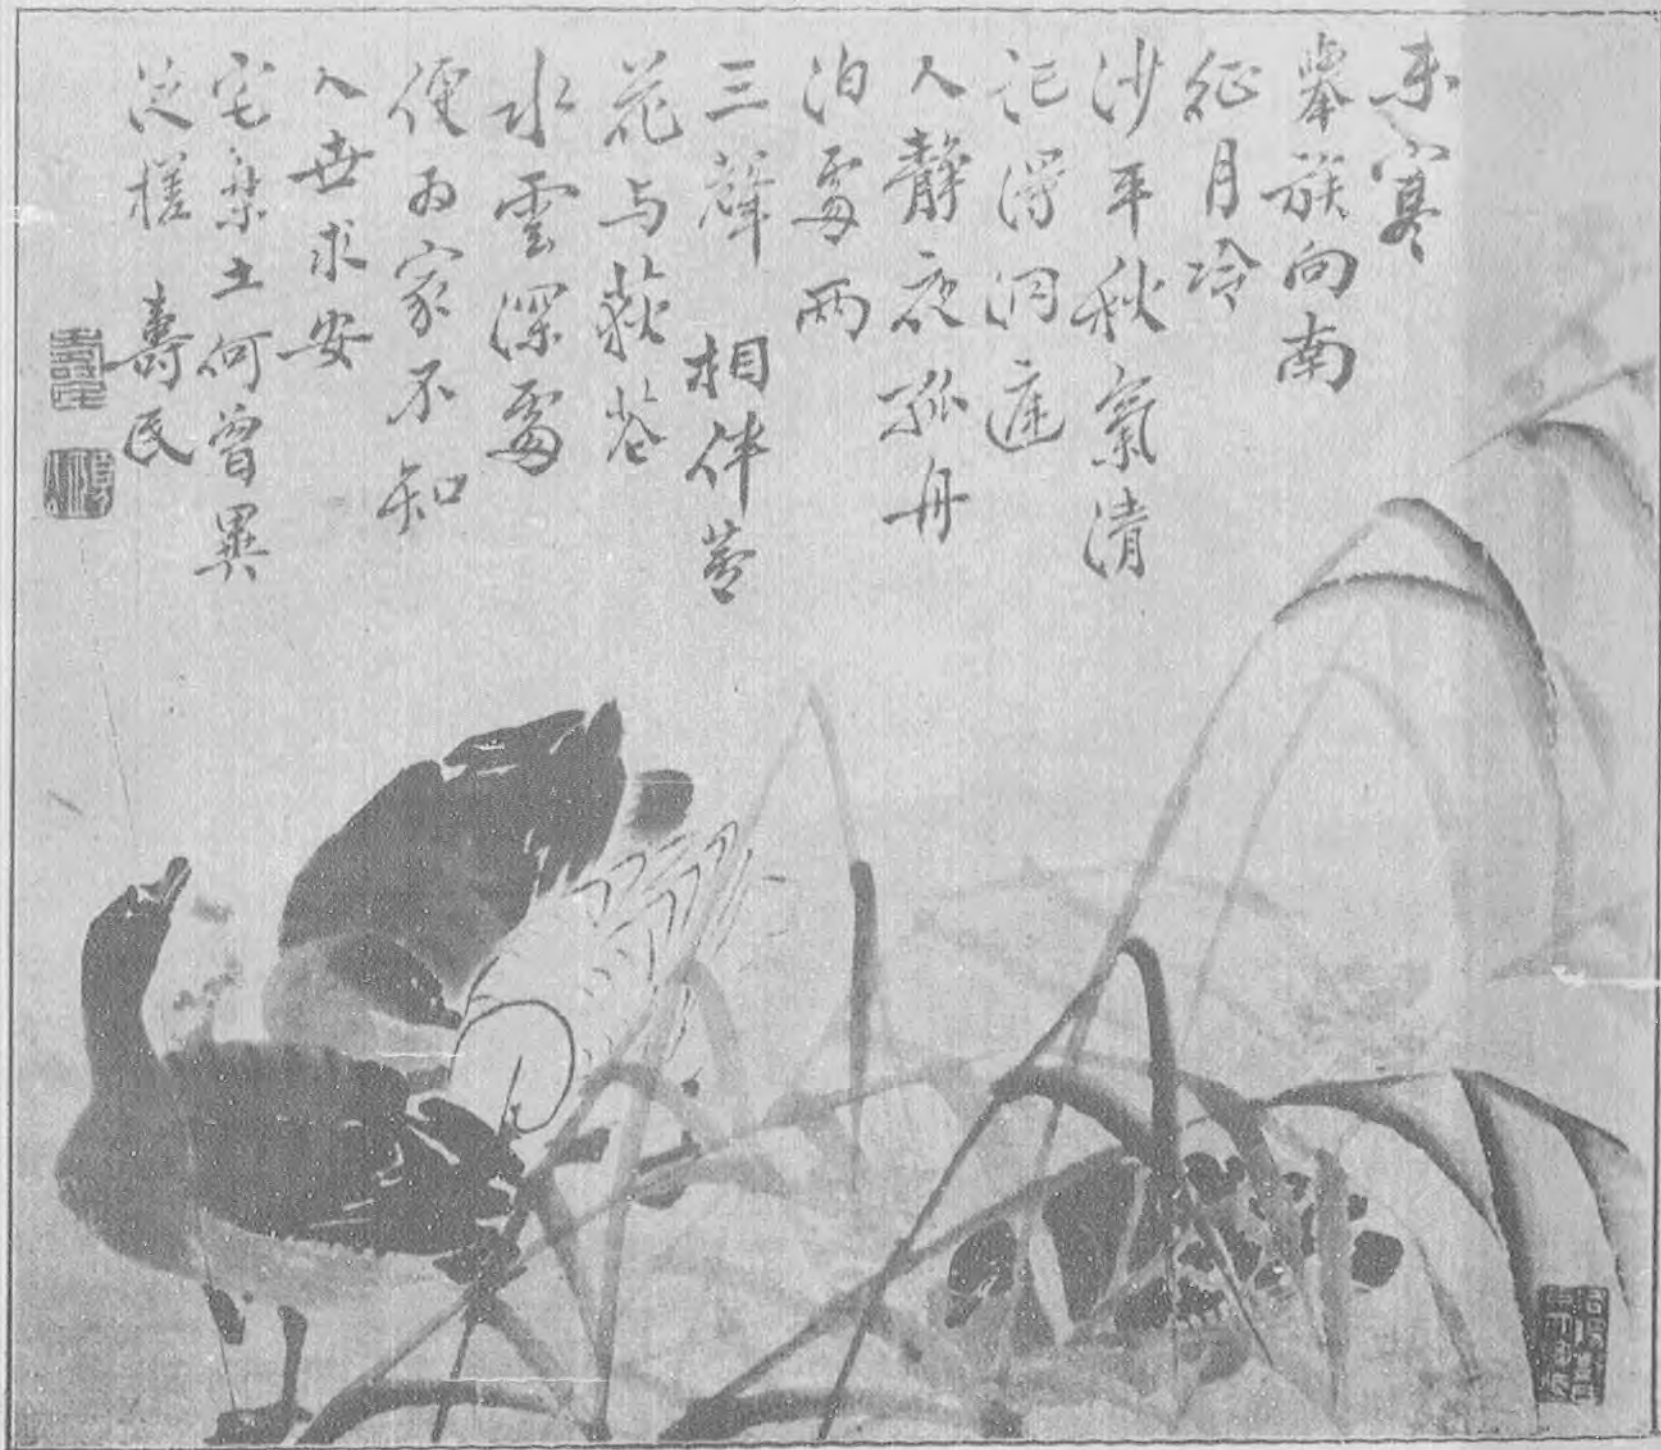 未寒
舉族向南
征月冷
沙平秋氣清
記得洞庭
人靜夜孤舟
泊處兩
三聲 相伴蘆
花与荻花
水雲深處
便为家不知
人世求安
宅樂土何曾異
泛槎 壽民
壽民